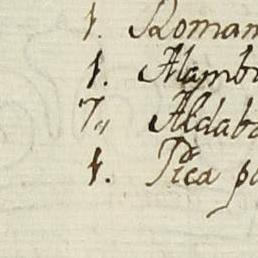 1. Roman
1. Alamb
7„ Aldaba
1. Pica p